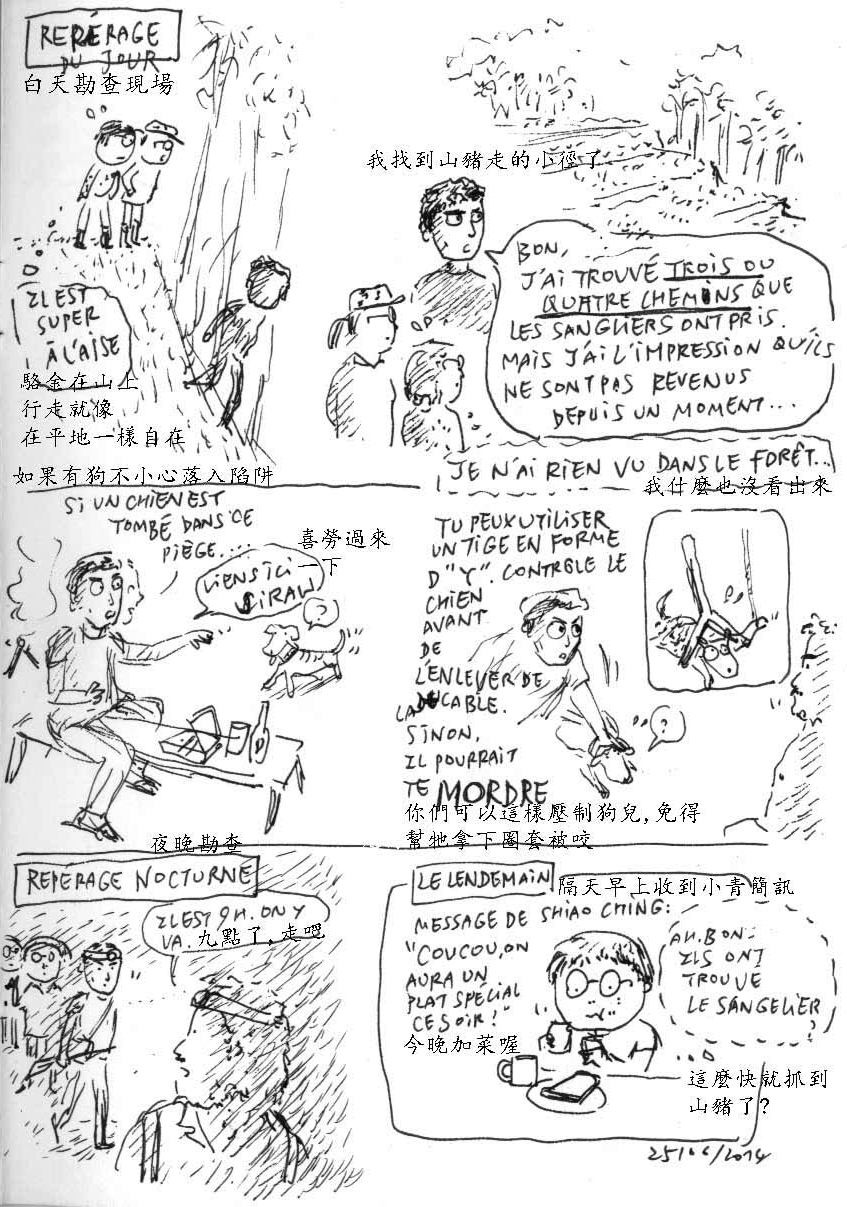 REPÉRAGE
DU JOUR
白天勘查現場
IL EST
SUPER
À L'AISE
駱金在山上
行走就像
在平地一樣自在
我找到山豬走的小徑了
BON,
J'AI TROUVÉ TROIS OU
QUATRE CHEMINS QUE
LES SANGLIERS ONT PRIS.
MAIS J'AI L'IMPRESSION QU'ILS
NE SONT PAS REVENUS
DEPUIS UN MOMENT...
JE N'AI RIEN VU DANS LE FORÊT...
我什麼也沒看出來
如果有狗不小心落入陷阱
SI UN CHIEN EST
TOMBÉ DANS CE
PIÈGE....
喜勞過來
一下
VIENS ICI
SIRAW
?
TU PEUX UTILISER
UN TIGE EN FORME
D'"Y". CONTRÔLE LE
CHIEN
AVANT
DE
L'ENLEVER DE
LA CABLE.
SINON,
IL POURRAIT
TE MORDRE
?
你們可以這樣壓制狗兒,免得
幫牠拿下圈套被咬
夜晚勘查
REPERAGE NOCTURNE
IL EST 9H. ON Y
VA. 九點了,走吧
LE LENDEMAIN
隔天早上收到小青簡訊
MESSAGE DE SHIAO CHING:
"COUCOU, ON
AURA UN
PLAT SPÉCIAL
CE SOIR!"
今晚加菜喔
AH. BON.
ILS ONT
TROUVE
LE SANGELIER
?
這麼快就抓到
山豬了?
25/06/2014